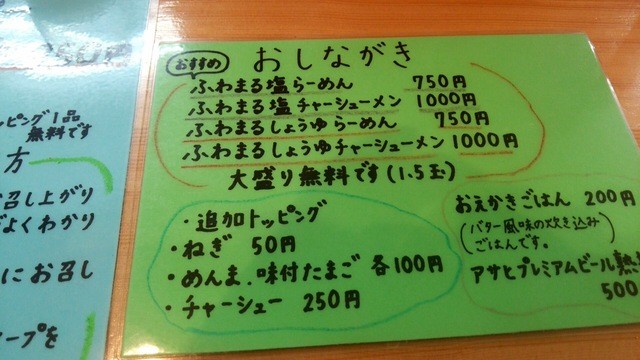 ッピング1品
無料です
方
召し上がり
よくわかり
にお召し
ープを
おすすめ
おしながき
ふわまる塩らーめん 750円
ふわまる塩チャーシューメン 1000円
ふわまるしょうゆらーめん 750円
ふわまるしょうゆチャーシューメン 1000円
大盛り無料です(1.5玉)
・追加トッピング
・ねぎ 50円
・めんま、味付たまご 各100円
・チャーシュー 250円
おえかきごはん 200円
(バター風味の炊き込み
ごはんです。)
アサヒプレミアムビール熟
500